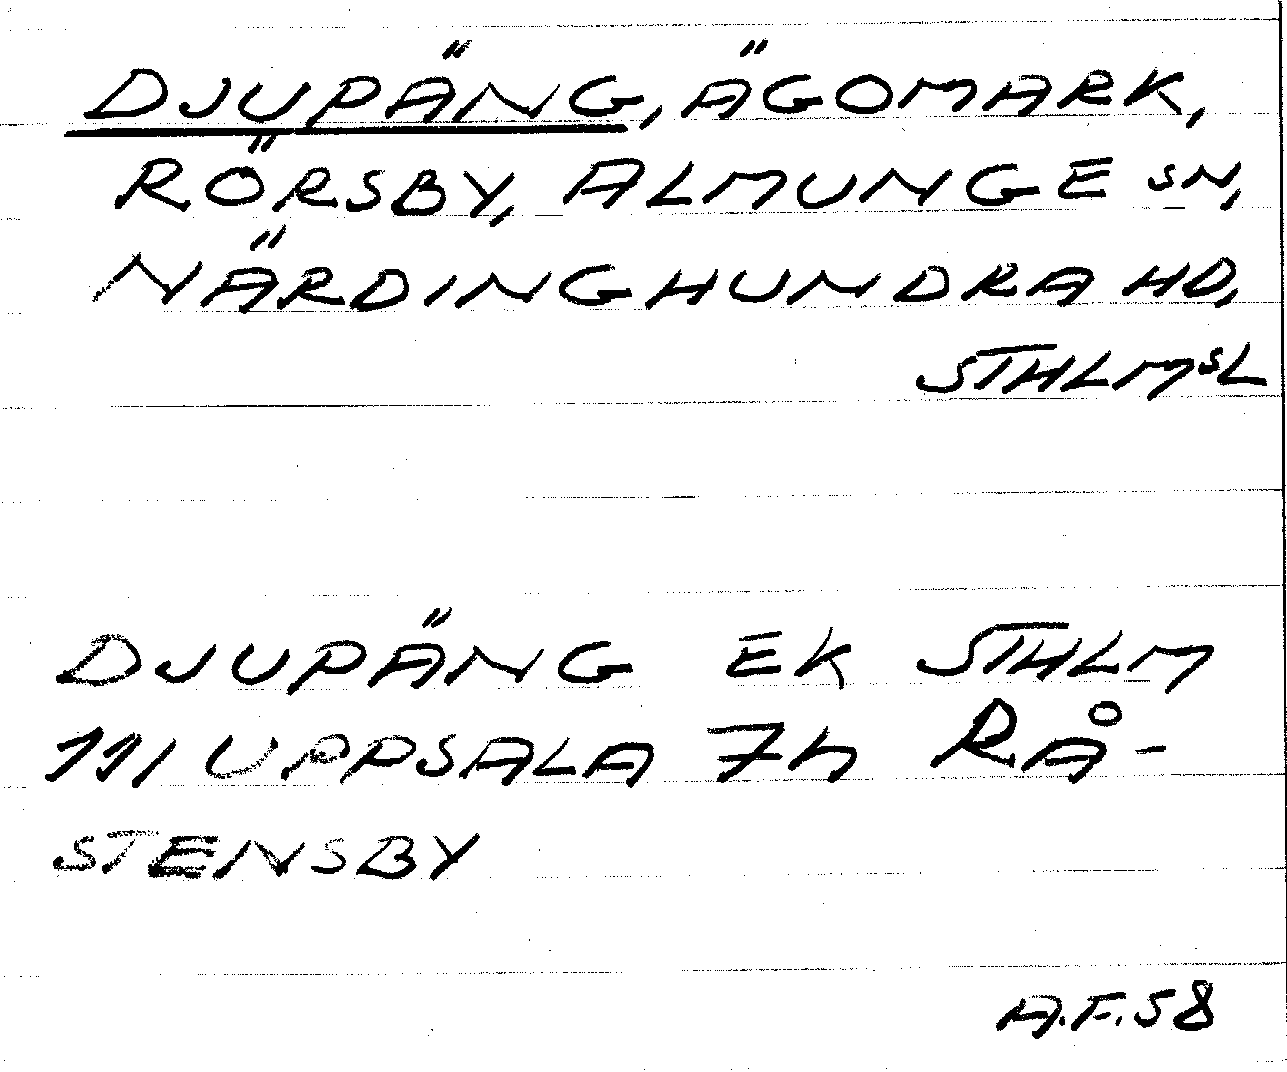 DJUPÄNG, ÄGOMARK,
RÖRSBY, ALMUNGE SN,
NÄRDINGHUNDRA HD,
STHLMSL
DJUPÄNG EK STHLM
111 UPPSALA 7h RÅ-
STENSBY
A.F.58